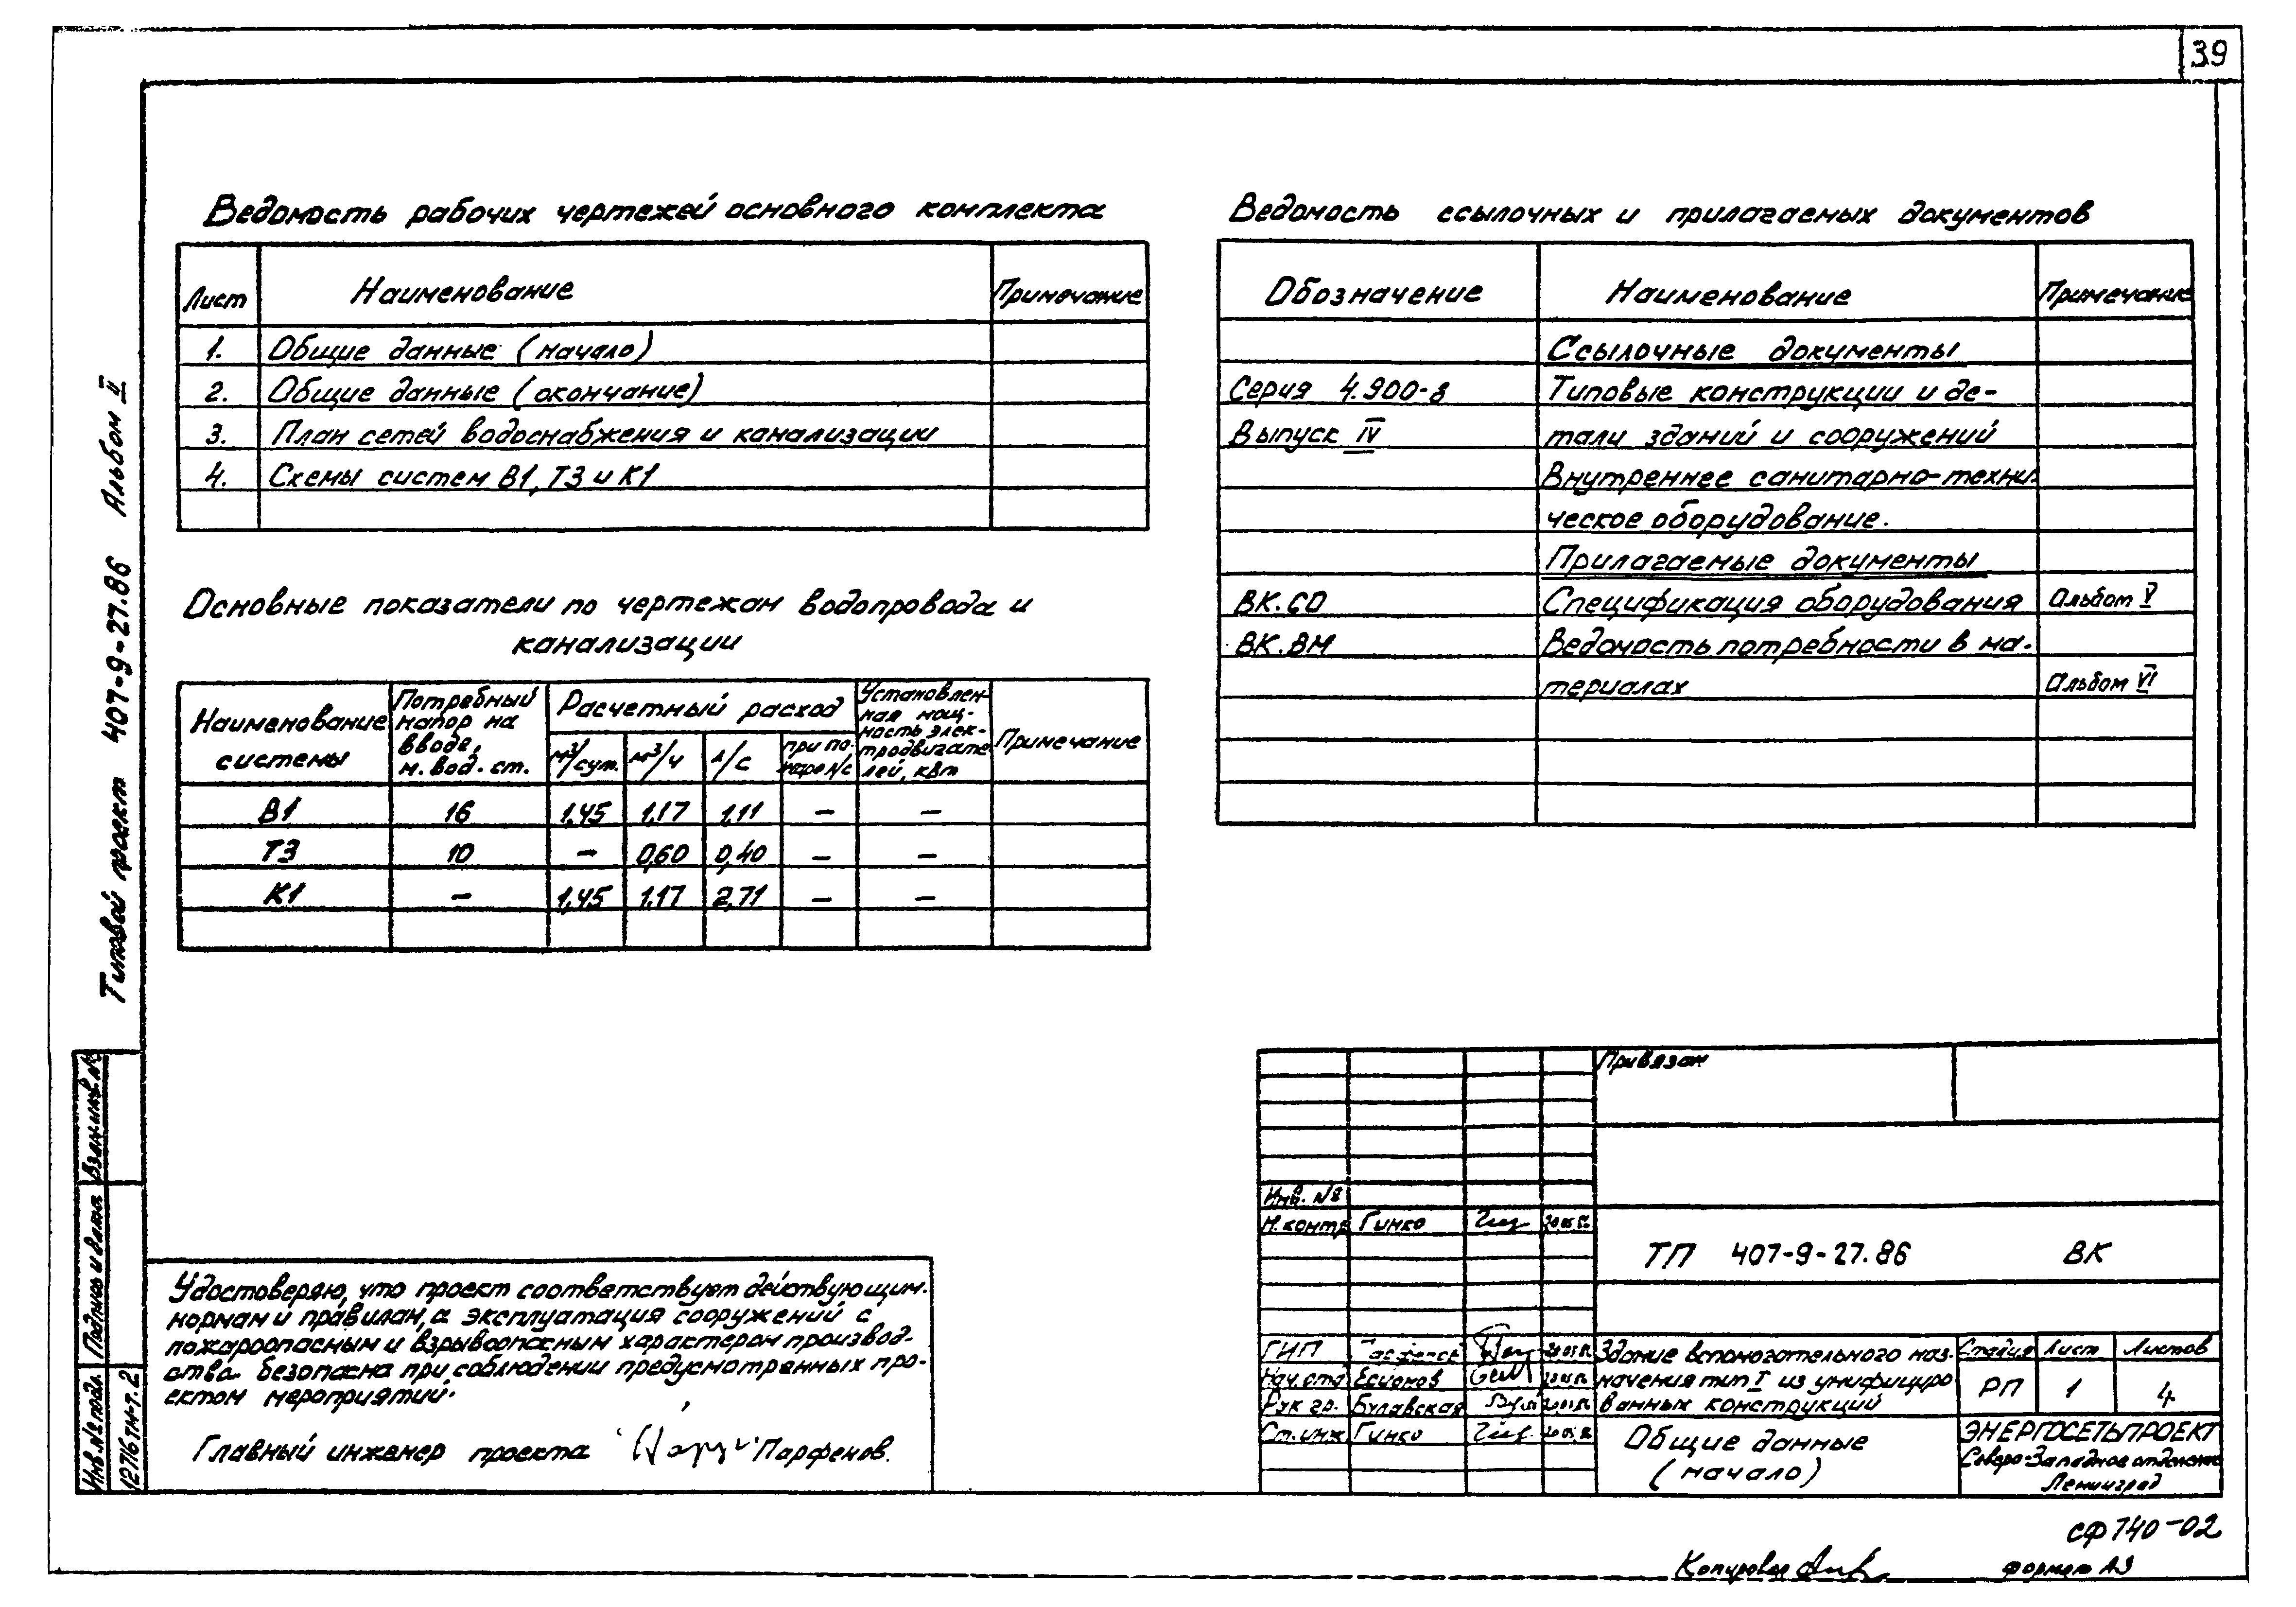 39
Ведомость рабочих чертежей основного комплекта
Лист Наименование Примечание
1. Общие данные (начало)
2. Общие данные (окончание)
3. План сетей водоснабжения и канализации
4. Схемы систем В1, Т3 и К1
Основные показатели по чертежам водопровода и
канализации
Наименование системы
Потребный напор на вводе, м. вод. ст.
Расчетный расход
м³/сут. м³/ч л/с при пожаре л/с
Установленная мощность электродвигателей, квт
Примечание
В1 16 1,45 1,17 1,11 – –
Т3 10 – 0,60 0,40 – –
К1 – 1,45 1,17 2,71 – –
Ведомость ссылочных и прилагаемых документов
Обозначение Наименование Примечание
Ссылочные документы
Серия 4.900-8 Типовые конструкции и де-
Выпуск IV тали зданий и сооружений
Внутреннее санитарно-техни-
ческое оборудование.
Прилагаемые документы
ВК.СО Спецификация оборудования Альбом V
ВК.ВМ Ведомость потребности в ма-
териалах Альбом VI
Типовой проект 407-9-27.86 Альбом II
Взам.инв.№
Подпись и дата
Инв.№ подл.
12716тм-т.2
Удостоверяю, что проект соответствует действующим
нормам и правилам, а эксплуатация сооружений с
пожароопасным и взрывоопасным характером производ-
ства безопасна при соблюдении предусмотренных про-
ектом мероприятий.
Главный инженер проекта Парфенов.
Привязан
Инв. №
Н.контр Гинко
ТП 407-9-27.86 ВК
ГИП
Нач.отд Есионов
Рук гр. Булавская
Ст.инж Гинко
Здание вспомогательного наз-
начения тип I из унифициро
ванных конструкций
Стадия Лист Листов
РП 1 4
Общие данные
(начало)
ЭНЕРГОСЕТЬПРОЕКТ
Северо-Западное отделение
Ленинград
СФ 740-02
Копировал
формат А3